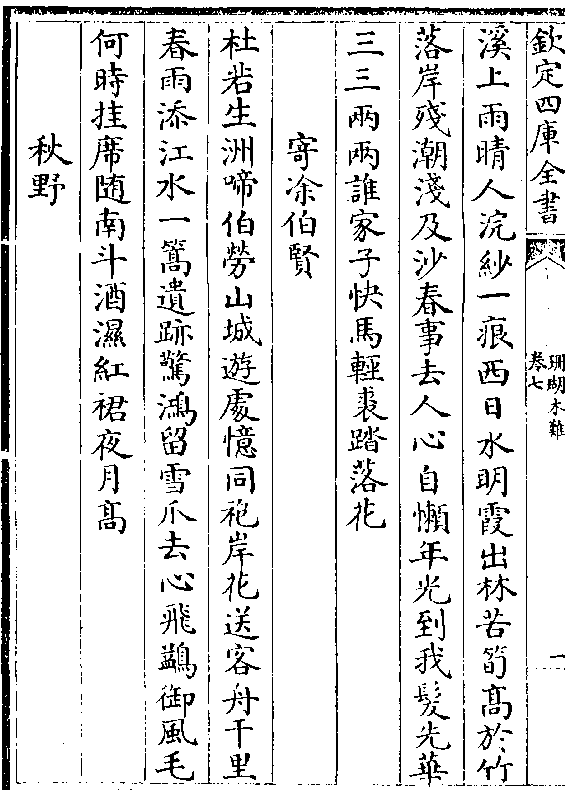 欽定四庫全書
珊瑚木難
卷七
一
溪上雨晴人浣紗一痕西日水明霞出林若筍髙於竹
落岸殘潮淺及沙春事去人心自懶年光到我髮先華
三三兩兩誰家子快馬輕裘踏落花
寄凃伯賢
杜若生洲啼伯勞山城遊處憶同袍岸花送客舟千里
春雨添江水一篙遺跡驚鴻留雪爪去心飛鷁御風毛
何時挂席随南斗酒濕紅裙夜月髙
秋野